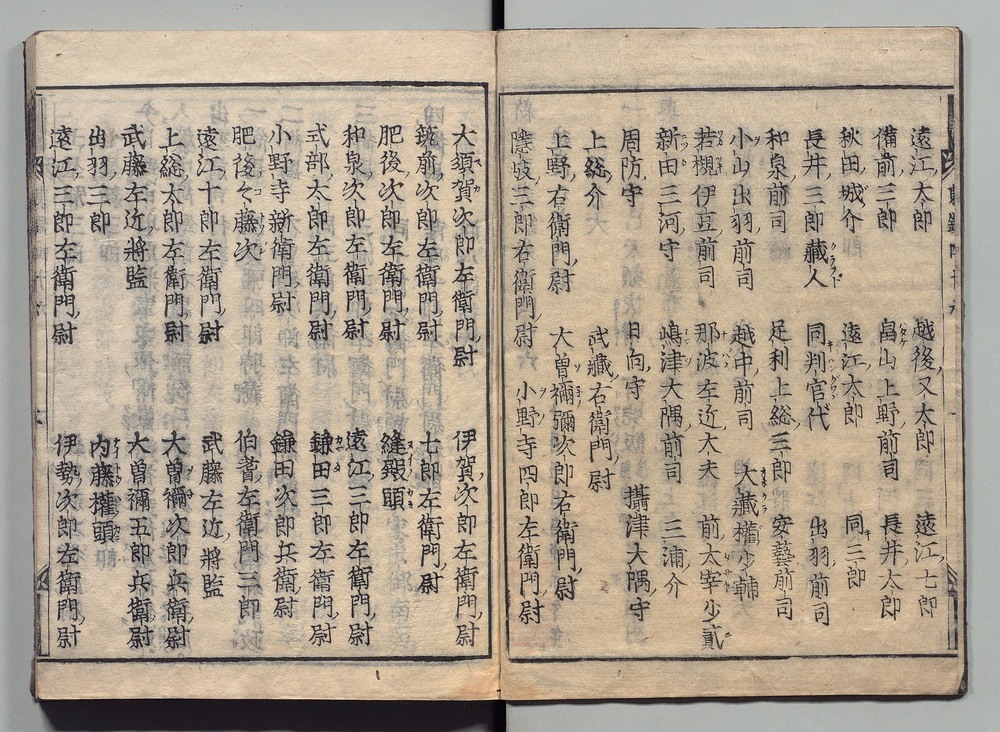 遠江太郎　越後又太郎　遠江七郎
備前三郎　畠山上野前司　長井太郎
秋田城介　遠江太郎　同三郎
長井三郎藏人　同判官代　出羽前司
和泉前司　足利上総三郎　安藝前司
小山出羽前司　越中前司　大藏權少輔
若槻伊豆前司　那波左近大夫　前太宰少貳
新田三河守　嶋津大隅前司　三浦介
周防守　日向守　攝津大隅守
上総介　武藏右衛門尉
上野右衛門尉　大曽禰弥次郎右衛門尉
隱岐三郎右衛門尉　小野寺四郎左衛門尉
大須賀次郎左衛門尉　伊賀次郎左衛門尉
筑前次郎左衛門尉　七郎左衛門尉
肥後次郎左衛門尉　縫殿頭
和泉次郎左衛門尉　遠江三郎左衛門尉
式部太郎左衛門尉　鎌田三郎左衛門尉
小野寺新衛門尉　鎌田次郎兵衛尉
肥後々藤次　伯耆左衛門三郎
遠江十郎左衛門尉　武藤左近將監
上総太郎左衛門尉　大曽禰次郎兵衛尉
武藤左近將監　大曽禰五郎兵衛尉
出羽三郎　内藤權頭
遠江三郎左衛門尉　伊勢次郎左衛門尉